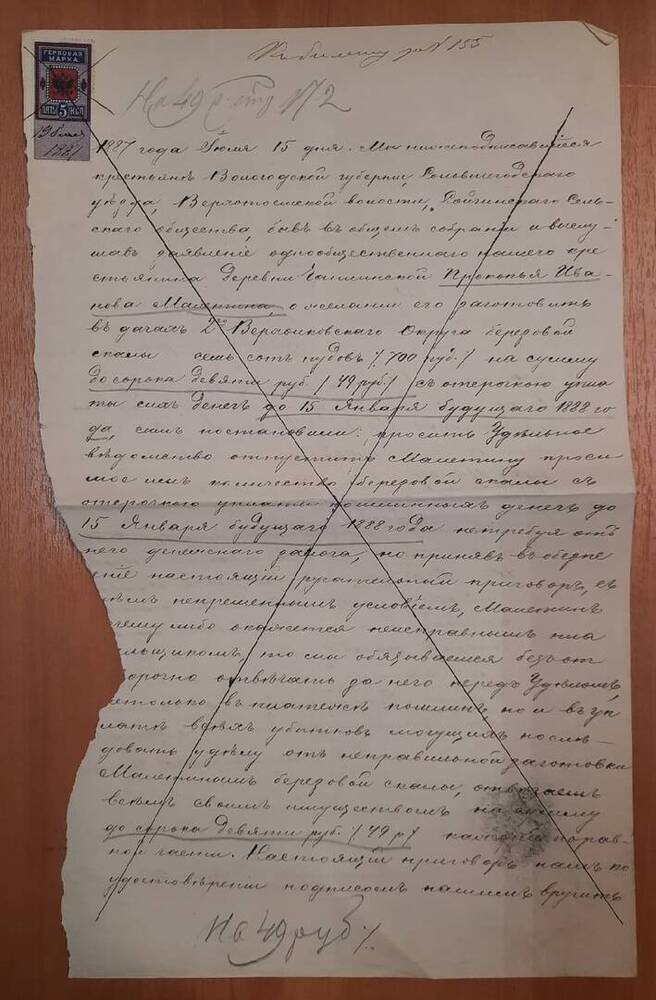 Къ билету за № 155
ГЕРБОВАЯ
МАРКА
ПЯТЬ 5 КОП
1887
На 49 р. № 2
1887 года Іюля 15 дня. Мы нижеподписавшіеся
крестьяне Вологодской губерніи, Сольвычегодскаго
уѣзда, Верхотоемской волости, Сель-
скаго общества, бывъ въ общемъ собраніи и выслу-
шавъ заявленіе однообщественнаго нашего кре
стьянина деревни Прокопья Ива-
нова Малетина, о желаніи его заготовить
въ дачахъ 2го Округа березовой
скалы семь сотъ пудовъ /700 пуд./ на сумму
до сорока девяти руб. /49 руб./ съ отсрочкою упла
ты сихъ денегъ до 15 Января будущаго 1888 го
да, симъ постановили: просить Удѣльное
вѣдомство отпустить Малетину проси
мое имъ количество березовой скалы съ
отсрочкою уплаты пошлинныхъ денегъ до
15 Января будущаго 1888 года не требуя отъ
него денежнаго залога, но принявъ въ обезпе
ніе настоящій ручательный приговоръ, съ
тѣмъ непремѣннымъ условіемъ, Малетинъ
чему либо окажется неисправнымъ пла
льщикомъ, то мы обязываемся безъот
ворочно отвѣчать за него передъ Удѣломъ,
нетолько въ платежѣ пошлинъ, но и въ уп
латѣ всѣхъ убытковъ могущихъ послѣ-
довать удѣлу отъ неправильной заготовки
Малетинымъ березовой скалы, отвѣчаемъ
всѣмъ своимъ имуществомъ на сумму
до сорока девяти руб. /49 р./ каждый по рав-
ной части. Настоящій приговоръ намъ по
удостовѣреніи подписомъ нашимъ вручить
На 49 руб.